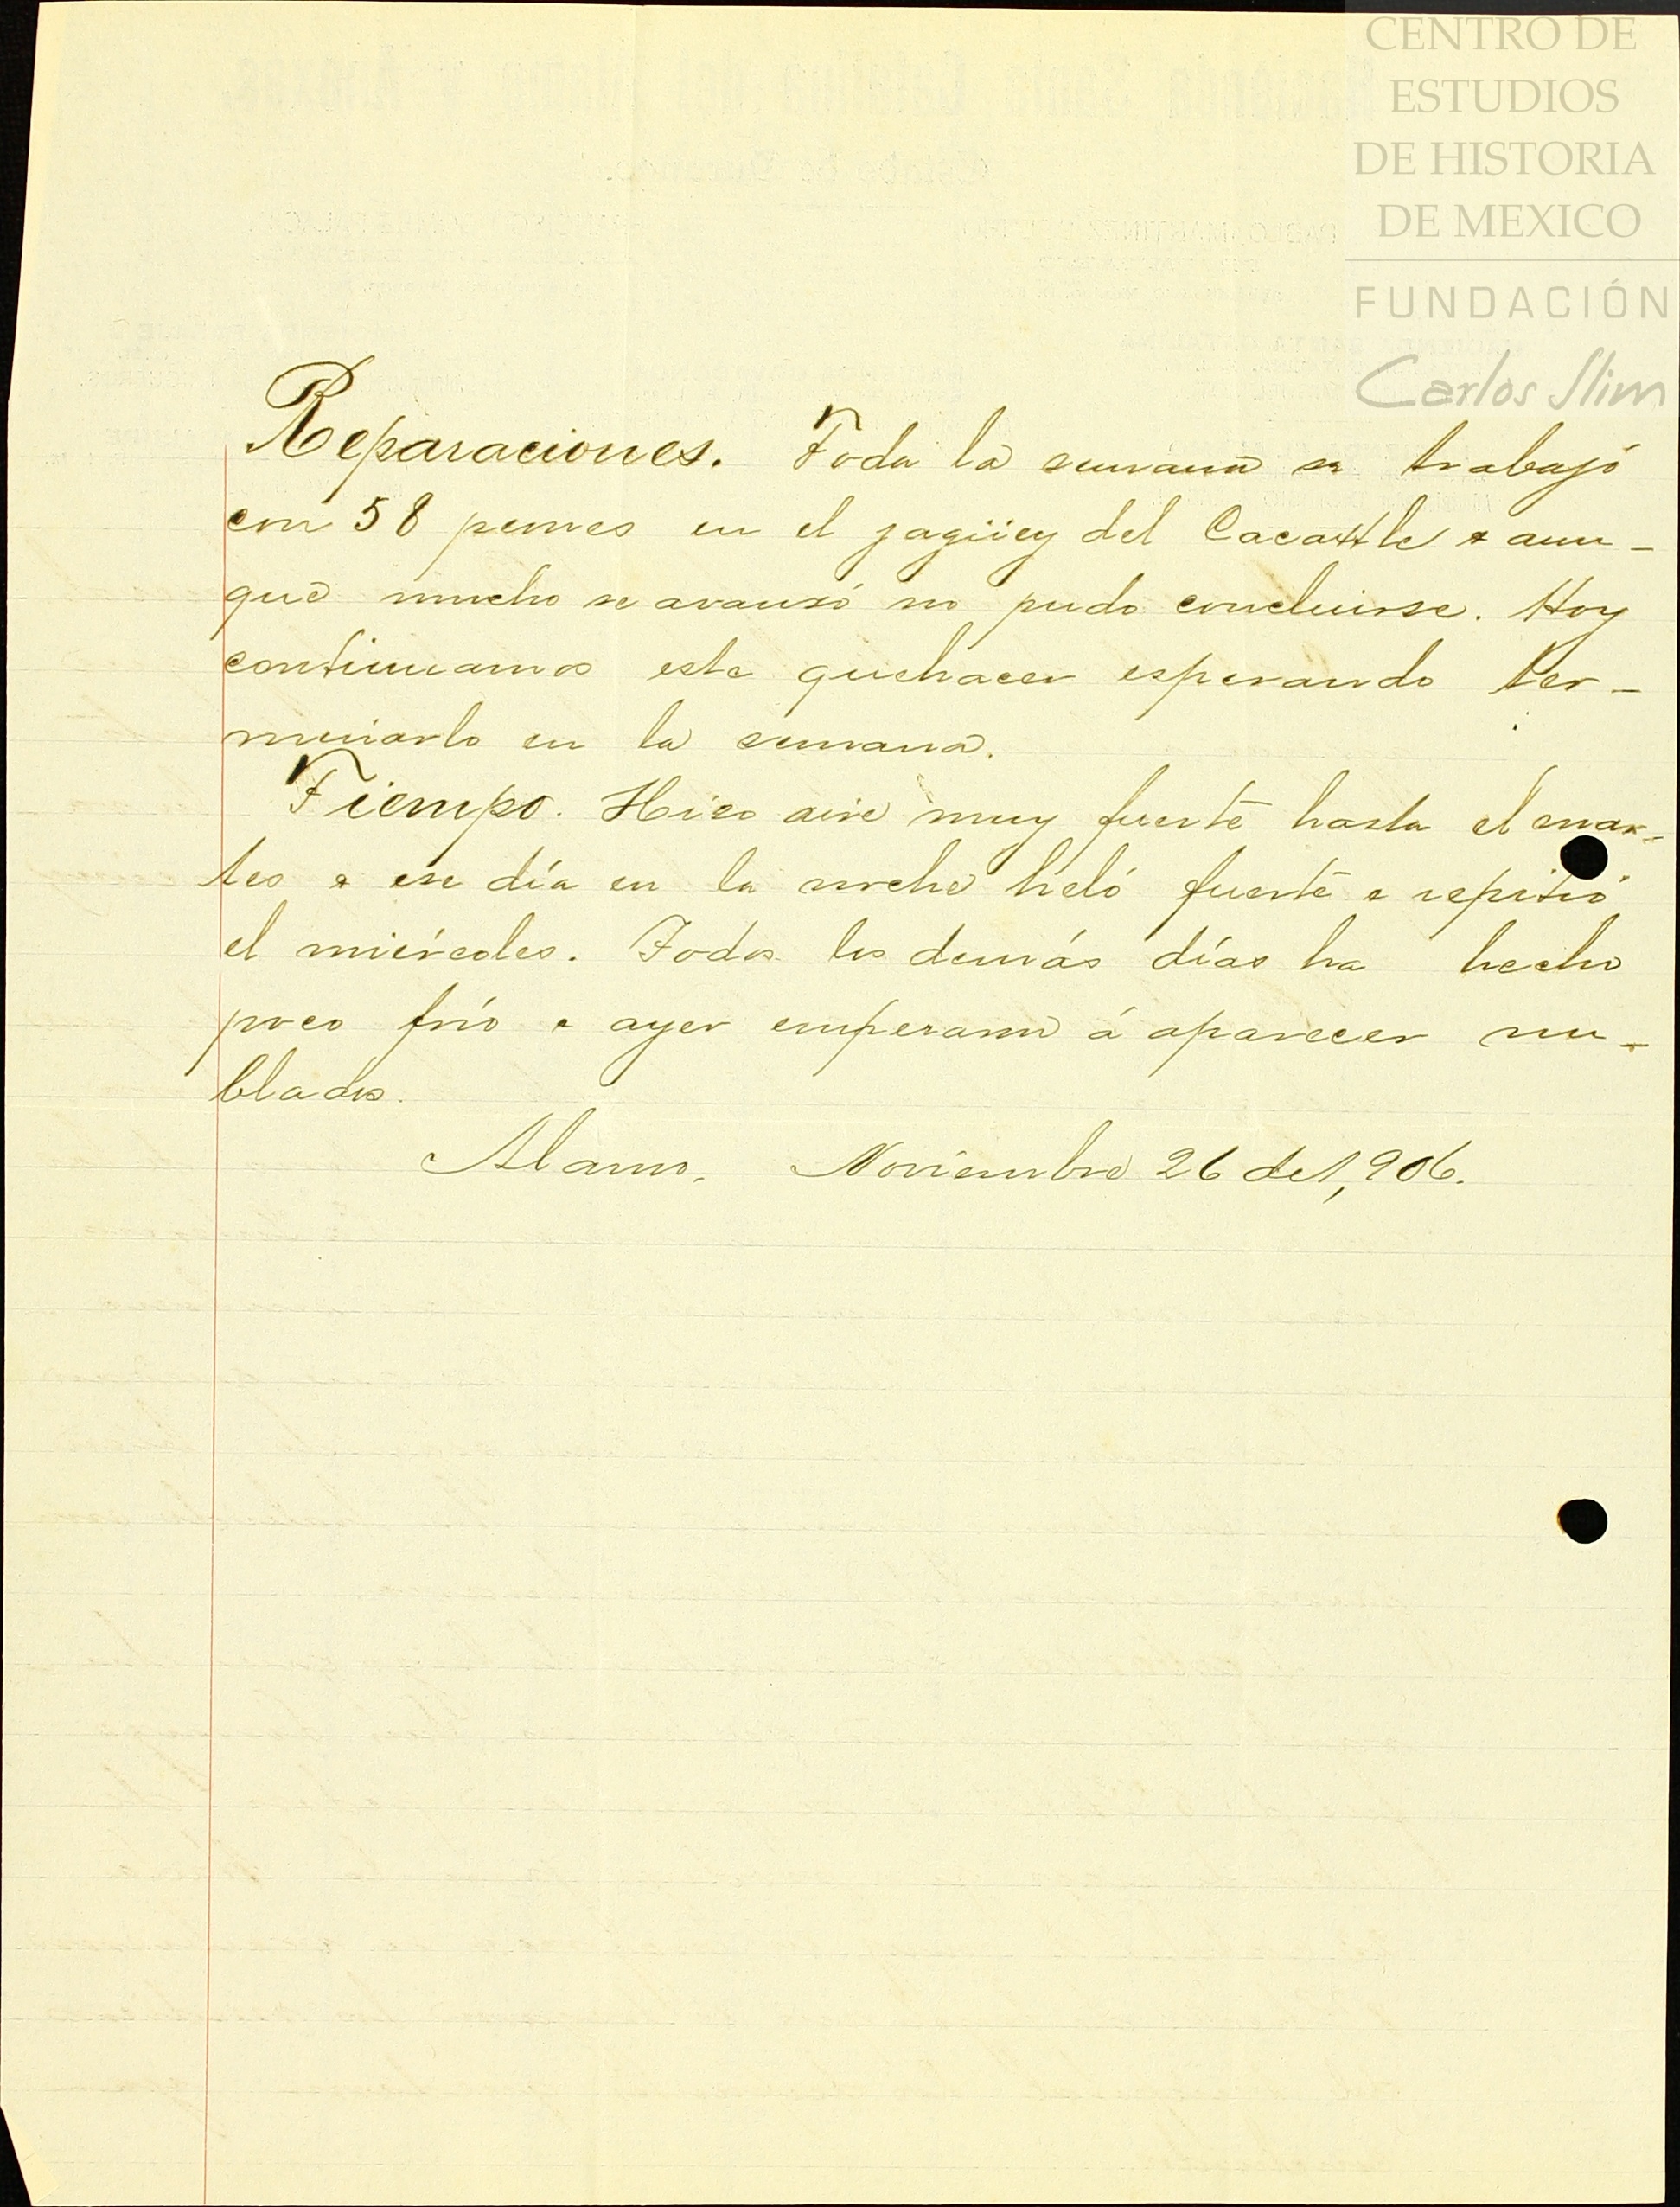 CENTRO DE
ESTUDIOS
DE HISTORIA
DE MEXICO
FUNDACIÓN
Carlos Slim
Reparaciones. Toda la semana se trabajó
con 58 peones en el jagüey del Cacaxtle e aun-
que mucho se avanzó no pudo concluirse. Hoy
continuamos este quehacer esperando ter-
minarlo en la semana.
Tiempo. Hizo aire muy fuerte hasta el mar-
tes e ese día en la noche heló fuerte e repitió
el miércoles. Todos los demás días ha hecho
poco frío e ayer empezaron á aparecer nu-
blados.
Alamo, Noviembre 26 de 1,906.